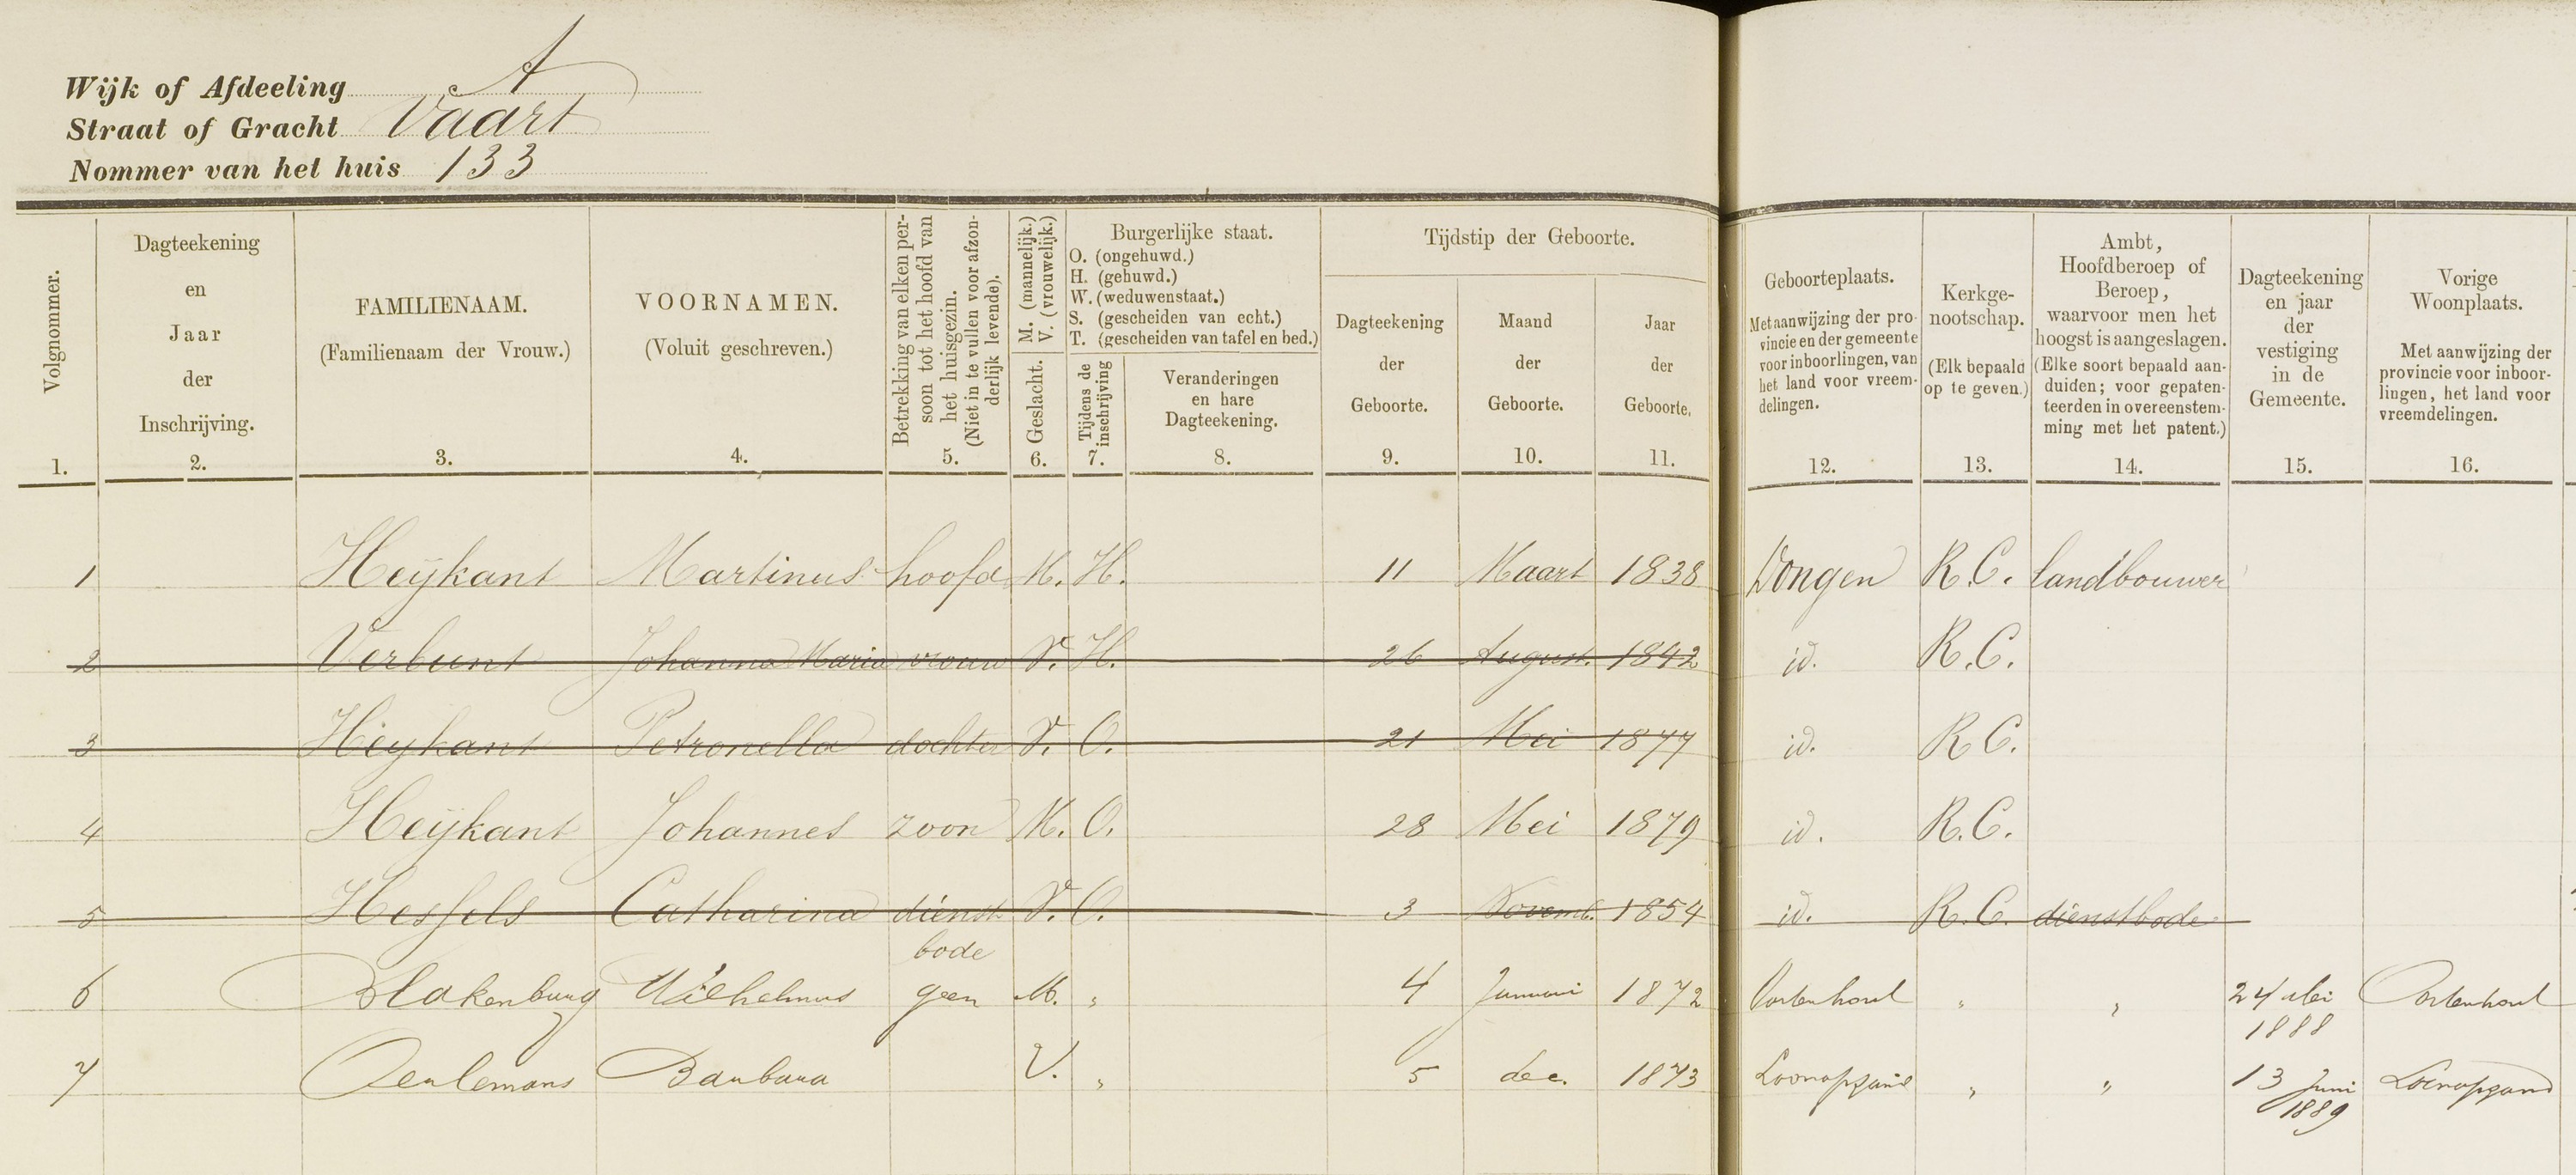 Wijk of Afdeeling A
Straat of Gracht Vaart
Nommer van het huis 133
Volgnommer.
1.
Dagteekening
en
Jaar
der
Inschrijving.
2.
FAMILIENAAM.
(Familienaam der Vrouw.)
3.
VOORNAMEN.
(Voluit geschreven.)
4.
Betrekking van elken per-
soon tot het hoofd van
het huisgezin.
(Niet in te vullen voor afzon-
derlijk levende).
5.
M. (mannelijk.)
V. (vrouwelijk.)
Geslacht.
6.
Burgerlijke staat.
O. (ongehuwd.)
H. (gehuwd.)
W. (weduwenstaat.)
S. (gescheiden van echt.)
T. (gescheiden van tafel en bed.)
Tijdens de
inschrijving
7.
Veranderingen
en hare
Dagteekening.
8.
Tijdstip der Geboorte.
Dagteekening
der
Geboorte.
9.
Maand
der
Geboorte.
10.
Jaar
der
Geboorte.
11.
Geboorteplaats.
Met aanwijzing der pro-
vincie en der gemeente
voor inboorlingen, van
het land voor vreem-
delingen.
12.
Kerkge-
nootschap.
(Elk bepaald
op te geven.)
13.
Ambt,
Hoofdberoep of
Beroep,
waarvoor men het
hoogst is aangeslagen.
(Elke soort bepaald aan-
duiden; voor gepaten-
teerden in overeenstem-
ming met het patent.)
14.
Dagteekening
en jaar
der
vestiging
in de
Gemeente.
15.
Vorige
Woonplaats.
Met aanwijzing der
provincie voor inboor-
lingen, het land voor
vreemdelingen.
16.
1 Heijkant Martinus hoofd M. H. 11 Maart 1838 Dongen R.C. landbouwer
2 Verbunt Johanna Maria vrouw V. H. 26 August. 1842 id. R.C.
3 Heijkant Petronella dochter V. O. 21 Mei 1877 id. R C.
4 Heijkant Johannes zoon M. O. 28 Mei 1879 id. R.C.
5 Hessels Catharina dienst- V. O. 3 Novemb. 1854 id. R.C. dienstbode
bode
6 Blakenburg Wilhelmus geen M. " 4 Januari 1872 Oosterhout " " 24 Mei Oosterhout
1888
7 Oerlemans Barbara V. " 5 dec. 1873 Loonopzand " " 13 Juni Loonopzand
1889